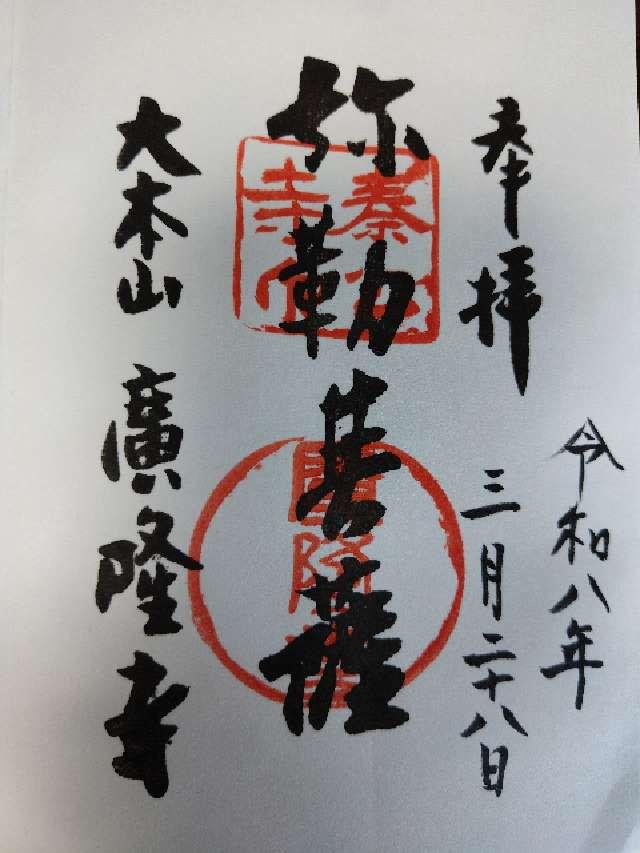 奉拝
令和八年
三月二十八日
弥勒菩薩
大本山 廣隆寺